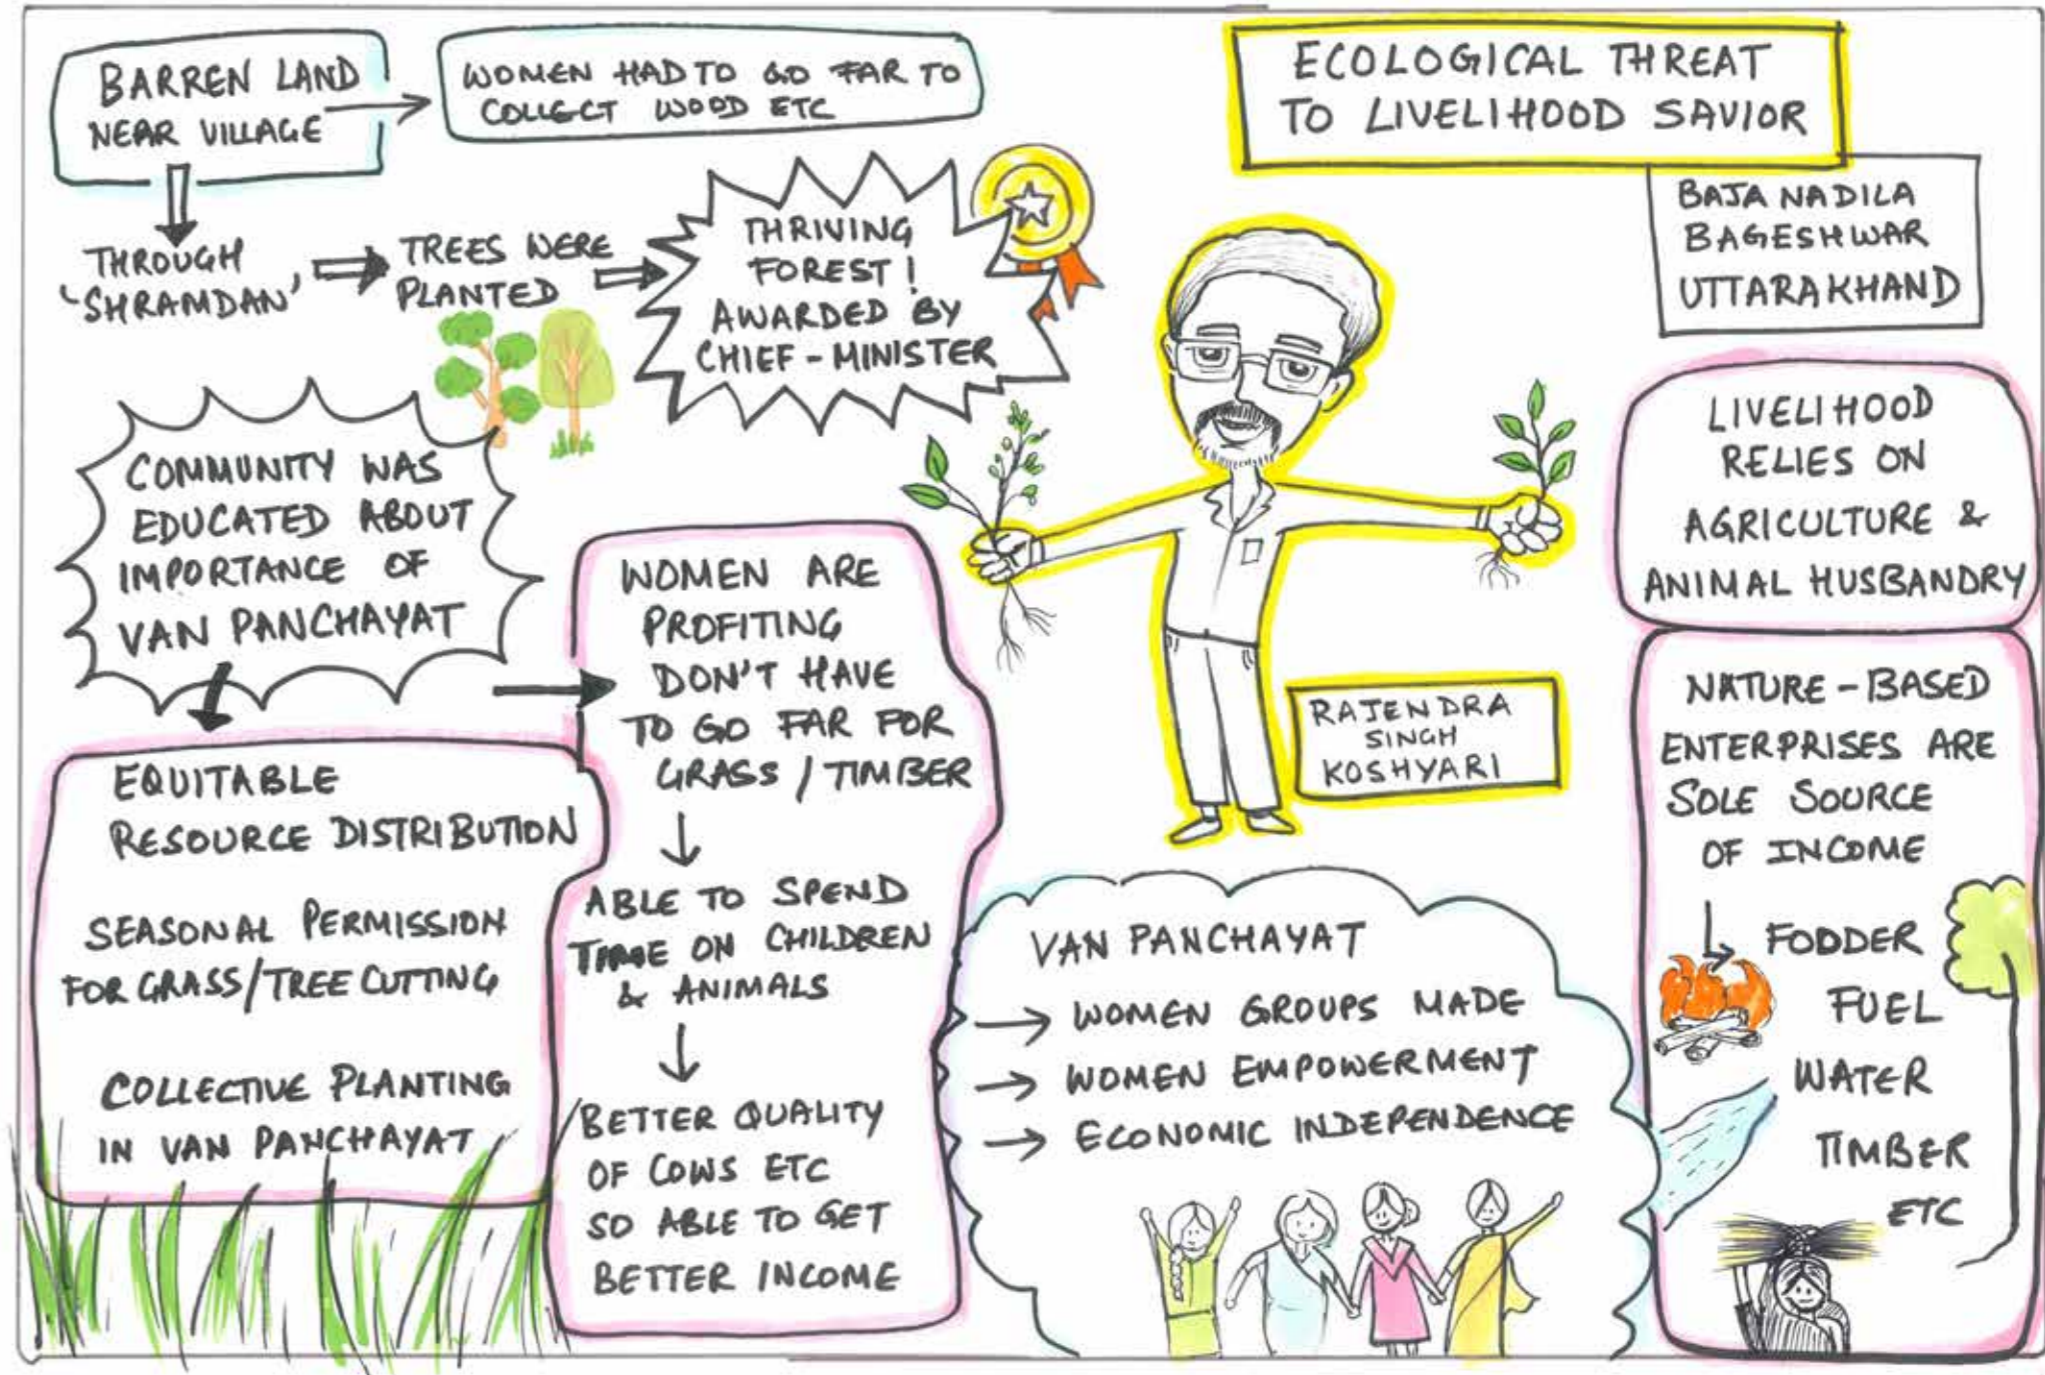 BARREN LAND
NEAR VILLAGE
WOMEN HAD TO GO FAR TO
COLLECT WOOD ETC
ECOLOGICAL THREAT
TO LIVELIHOOD SAVIOR
BAJA NADILA
BAGESHWAR
UTTARAKHAND
THROUGH
'SHRAMDAN'
TREES WERE
PLANTED
THRIVING
FOREST!
AWARDED BY
CHIEF-MINISTER
COMMUNITY WAS
EDUCATED ABOUT
IMPORTANCE OF
VAN PANCHAYAT
EQUITABLE
RESOURCE DISTRIBUTION
SEASONAL PERMISSION
FOR GRASS/TREE CUTTING
COLLECTIVE PLANTING
IN VAN PANCHAYAT
WOMEN ARE
PROFITING
DON'T HAVE
TO GO FAR FOR
GRASS / TIMBER
ABLE TO SPEND
TIME ON CHILDREN
& ANIMALS
BETTER QUALITY
OF COWS ETC
SO ABLE TO GET
BETTER INCOME
RAJENDRA
SINGH
KOSHYARI
VAN PANCHAYAT
WOMEN GROUPS MADE
WOMEN EMPOWERMENT
ECONOMIC INDEPENDENCE
LIVELIHOOD
RELIES ON
AGRICULTURE &
ANIMAL HUSBANDRY
NATURE-BASED
ENTERPRISES ARE
SOLE SOURCE
OF INCOME
FODDER
FUEL
WATER
TIMBER
ETC